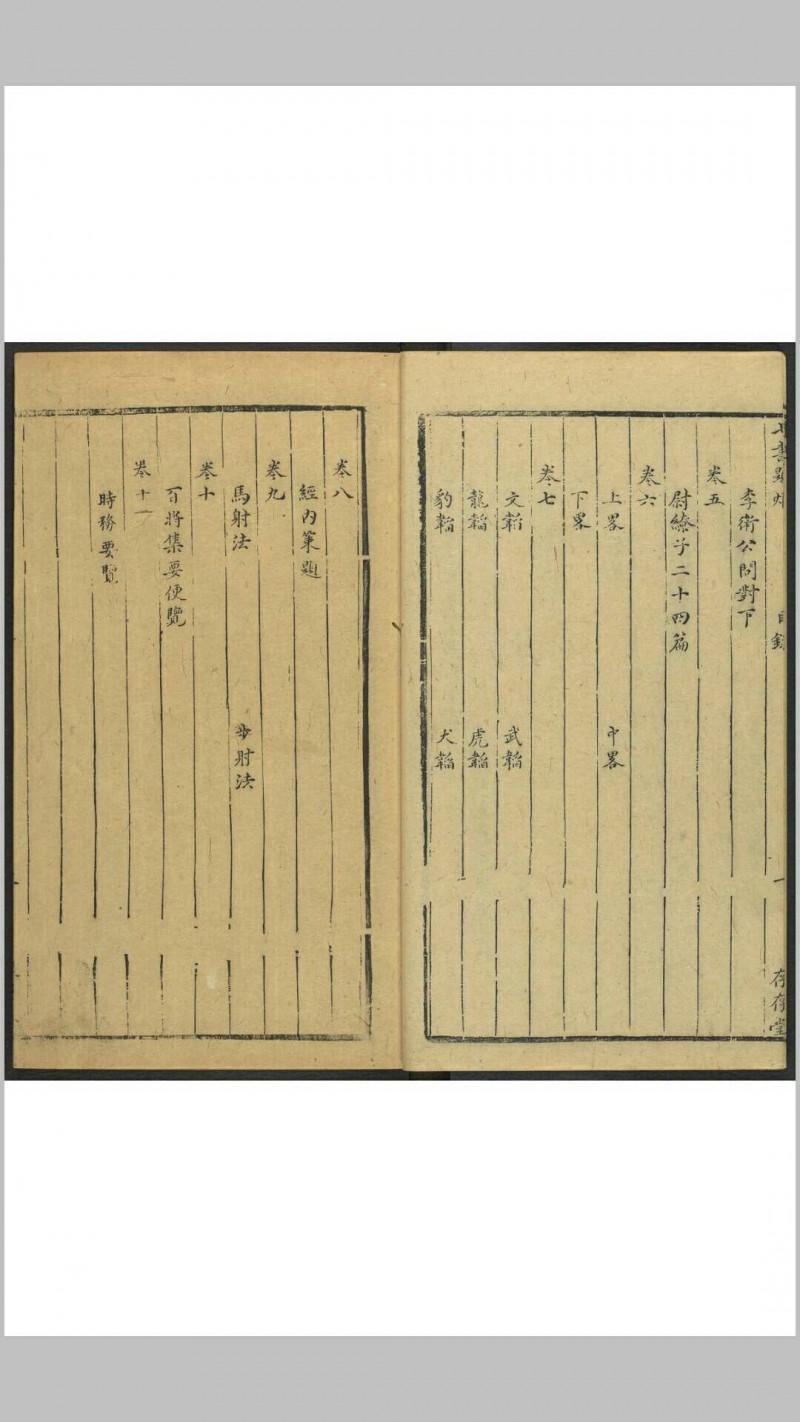 目錄
一
存存堂
李衛公問對下
卷五
尉繚子二十四篇
卷六
上畧 中畧
下畧
卷七
文韜 武韜
龍韜 虎韜
豹韜 犬韜
卷八
經內策題
卷九
馬射法 步射法
卷十
百將集要便覽
卷十一
時務要覽